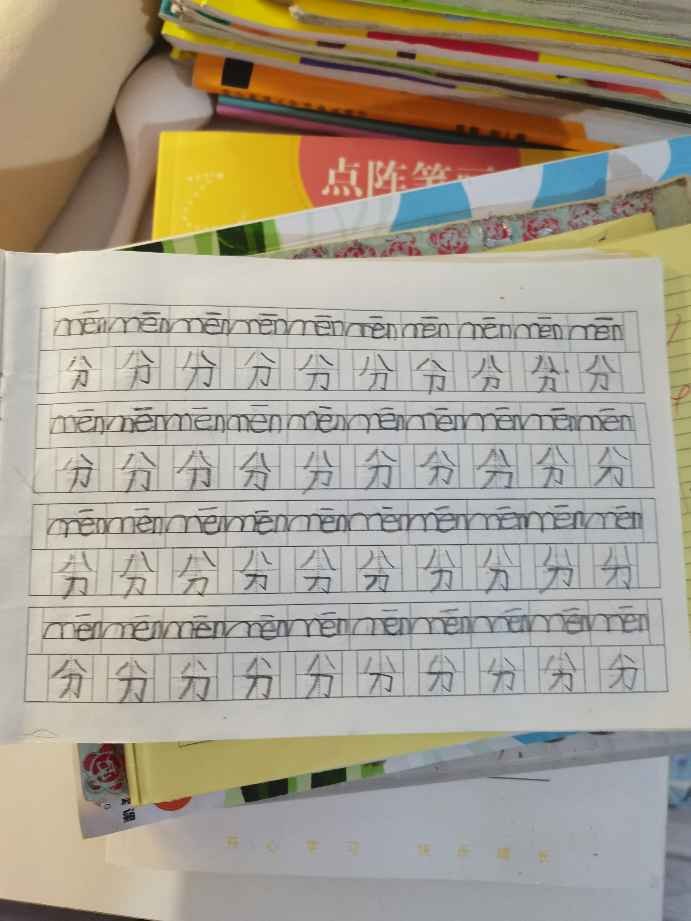 点阵笔
mēn mēn mēn mēn mēn mēn mēn mēn mēn mēn
分 分 分 分 分 分 分 分 分 分
mēn mēn mēn mēn mēn mēn mēn mēn mēn mēn
分 分 分 分 分 分 分 分 分 分
mēn mēn mēn mēn mēn mēn mēn mēn mēn mēn
分 分 分 分 分 分 分 分 分 分
mēn mēn mēn mēn mēn mēn mēn mēn mēn mēn
分 分 分 分 分 分 分 分 分 分
课
开心学习 快乐成长